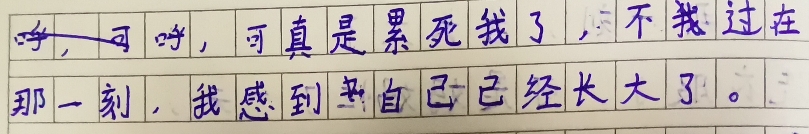 呼，可真是累死我了，不我过在
那一刻，我感到自己已经长大了。